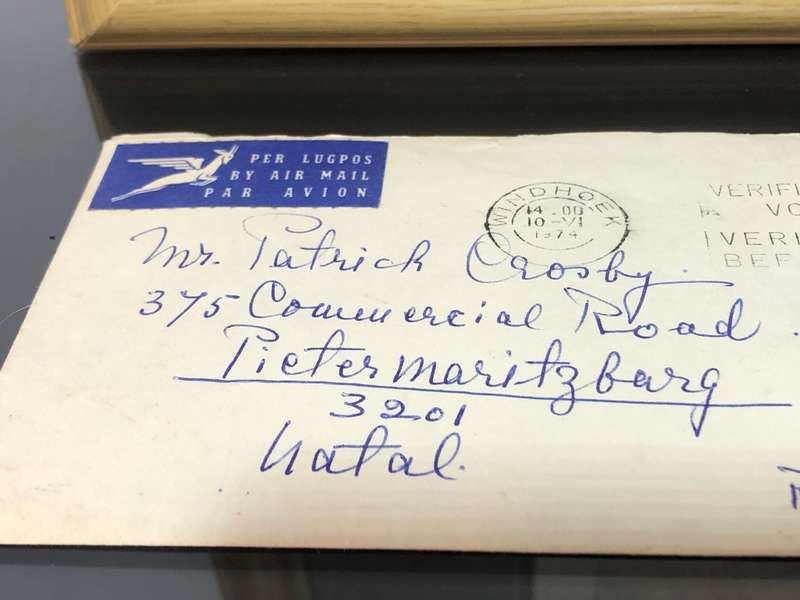 PER LUGPOS
BY AIR MAIL
PAR AVION
WINDHOEK
14.00
10-VI
1974
VERIFI
VO
VERI
BEF
Mr. Patrick Crosby.
375 Commercial Road.
Pietermaritzburg
3201
Natal.